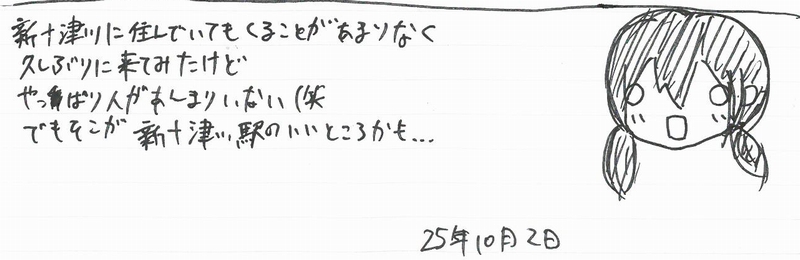 新十津川に住んでいてもくることがあまりなく
久しぶりに来てみたけど
やっぱり人があんまりいない(笑
でもそこが 新十津川駅のいいところかも…
25年10月2日